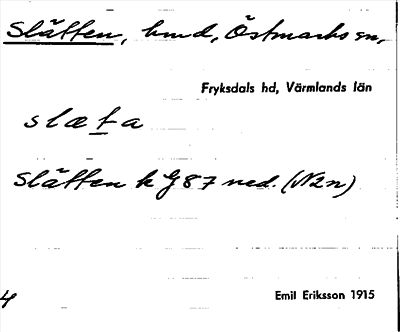 Slätten, hmd, Östmarks sn,
Fryksdals hd, Värmlands län
slæta
Slätten k G 87 ned. (N2n)
4
Emil Eriksson 1915